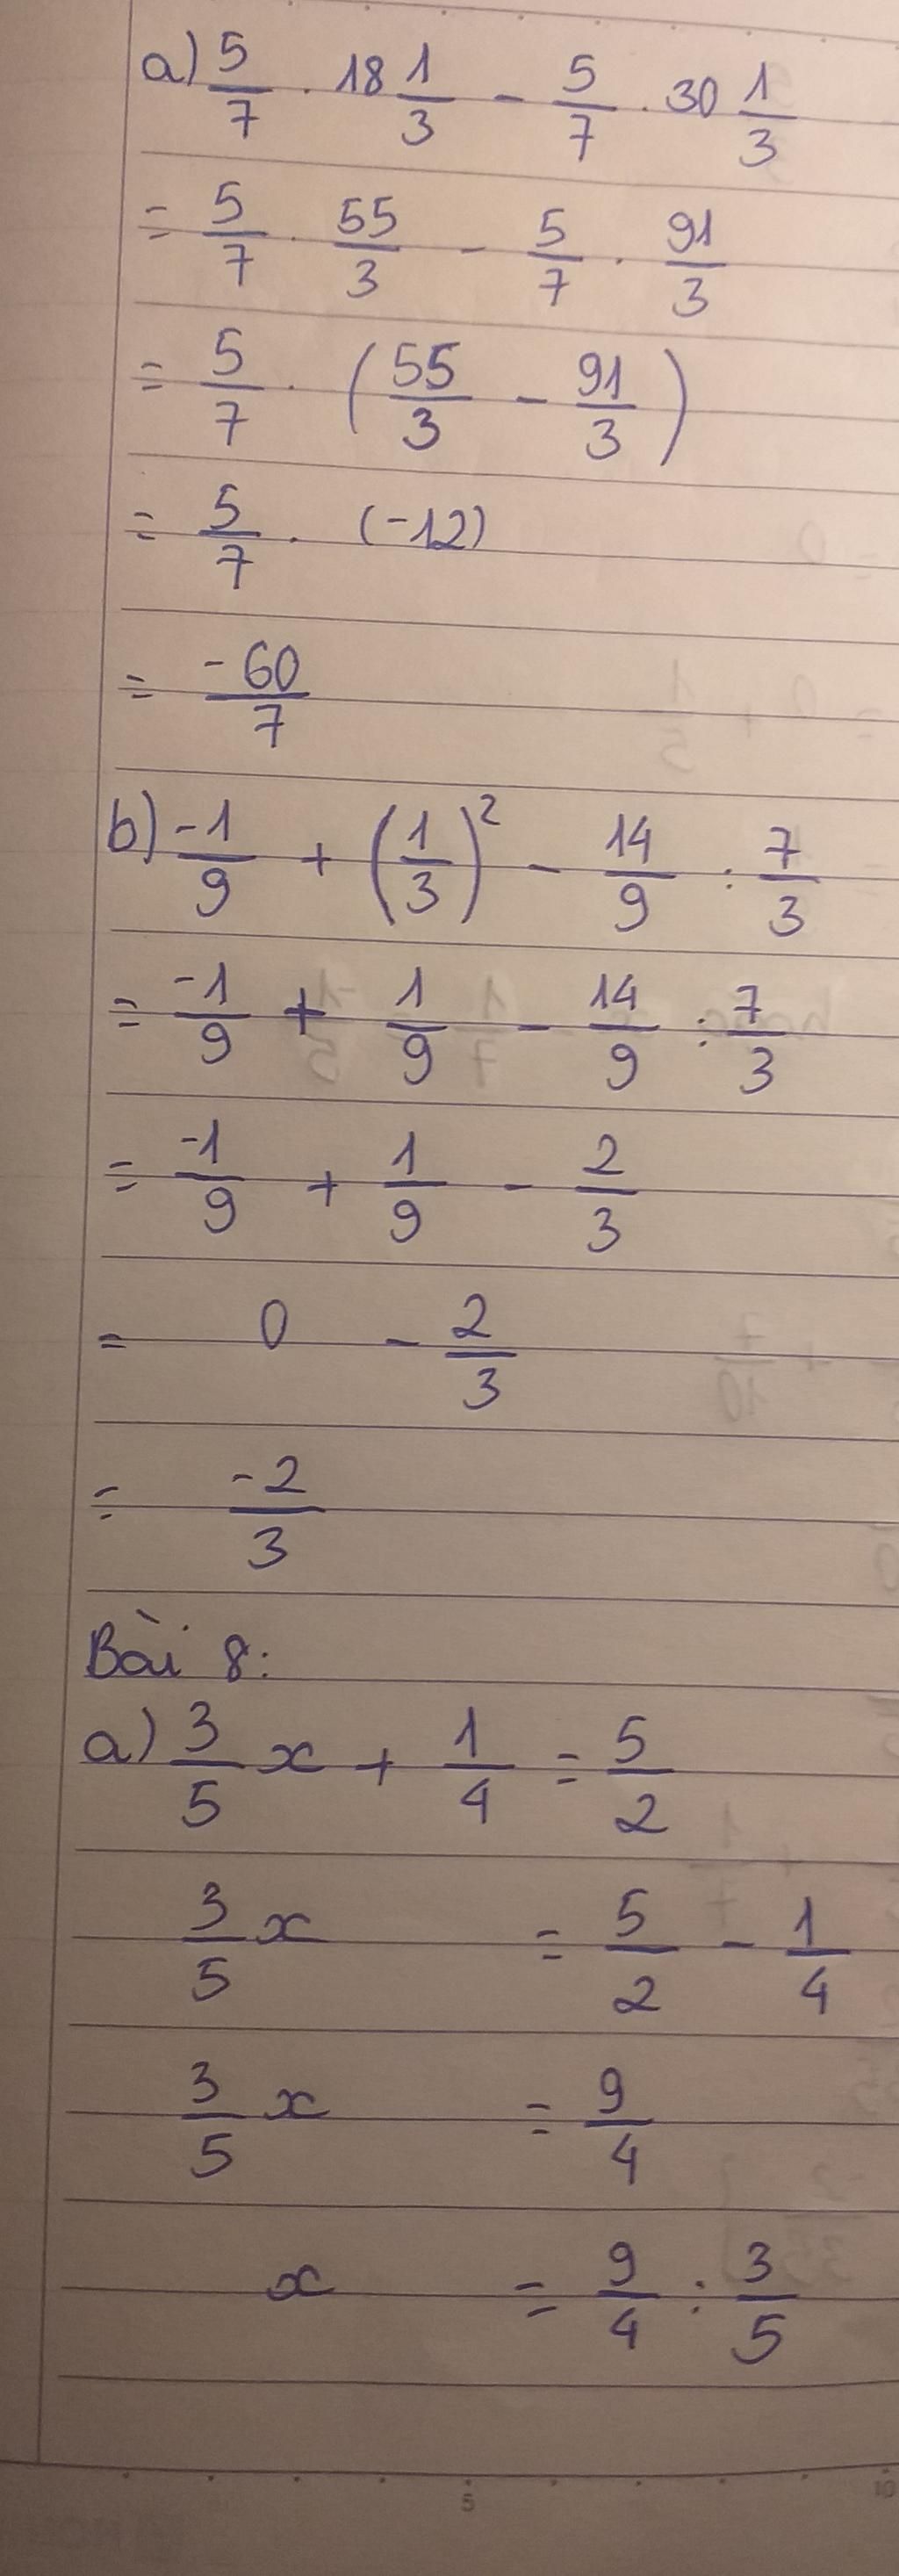 a) 5/7 . 18 1/3 - 5/7 . 30 1/3
= 5/7 . 55/3 - 5/7 . 91/3
= 5/7 . (55/3 - 91/3)
= 5/7 . (-12)
= -60/7
b) -1/9 + (1/3)² - 14/9 : 7/3
= -1/9 + 1/9 - 14/9 : 7/3
= -1/9 + 1/9 - 2/3
= 0 - 2/3
= -2/3
Bài 8:
a) 3/5 x + 1/4 = 5/2
3/5 x = 5/2 - 1/4
3/5 x = 9/4
x = 9/4 : 3/5
5 10